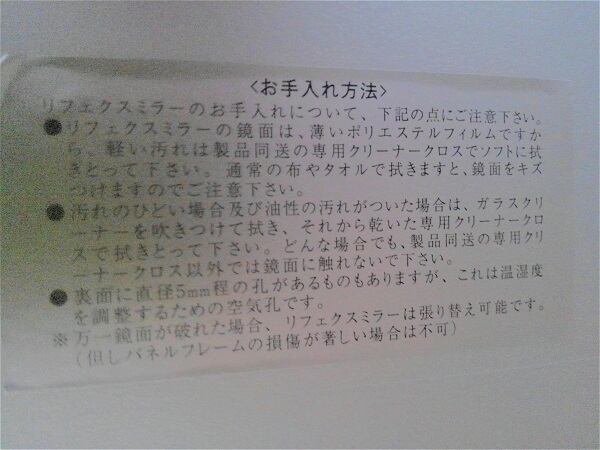 〈お手入れ方法〉
リフェクスミラーのお手入れについて、下記の点にご注意下さい。
●リフェクスミラーの鏡面は、薄いポリエステルフィルムですか
ら、軽い汚れは製品同送の専用クリーナークロスでソフトに拭
きとって下さい。通常の布やタオルで拭きますと、鏡面をキズ
つけますのでご注意下さい。
●汚れのひどい場合及び油性の汚れがついた場合は、ガラスクリ
ーナーを吹きつけて拭き、それから乾いた専用クリーナークロ
スで拭きとって下さい。どんな場合でも、製品同送の専用クリ
ーナークロス以外では鏡面に触れないで下さい。
●裏面に直径5mm程の孔があるものもありますが、これは温湿度
を調整するための空気孔です。
※万一鏡面が破れた場合、リフェクスミラーは張り替え可能です。
(但しパネルフレームの損傷が著しい場合は不可)